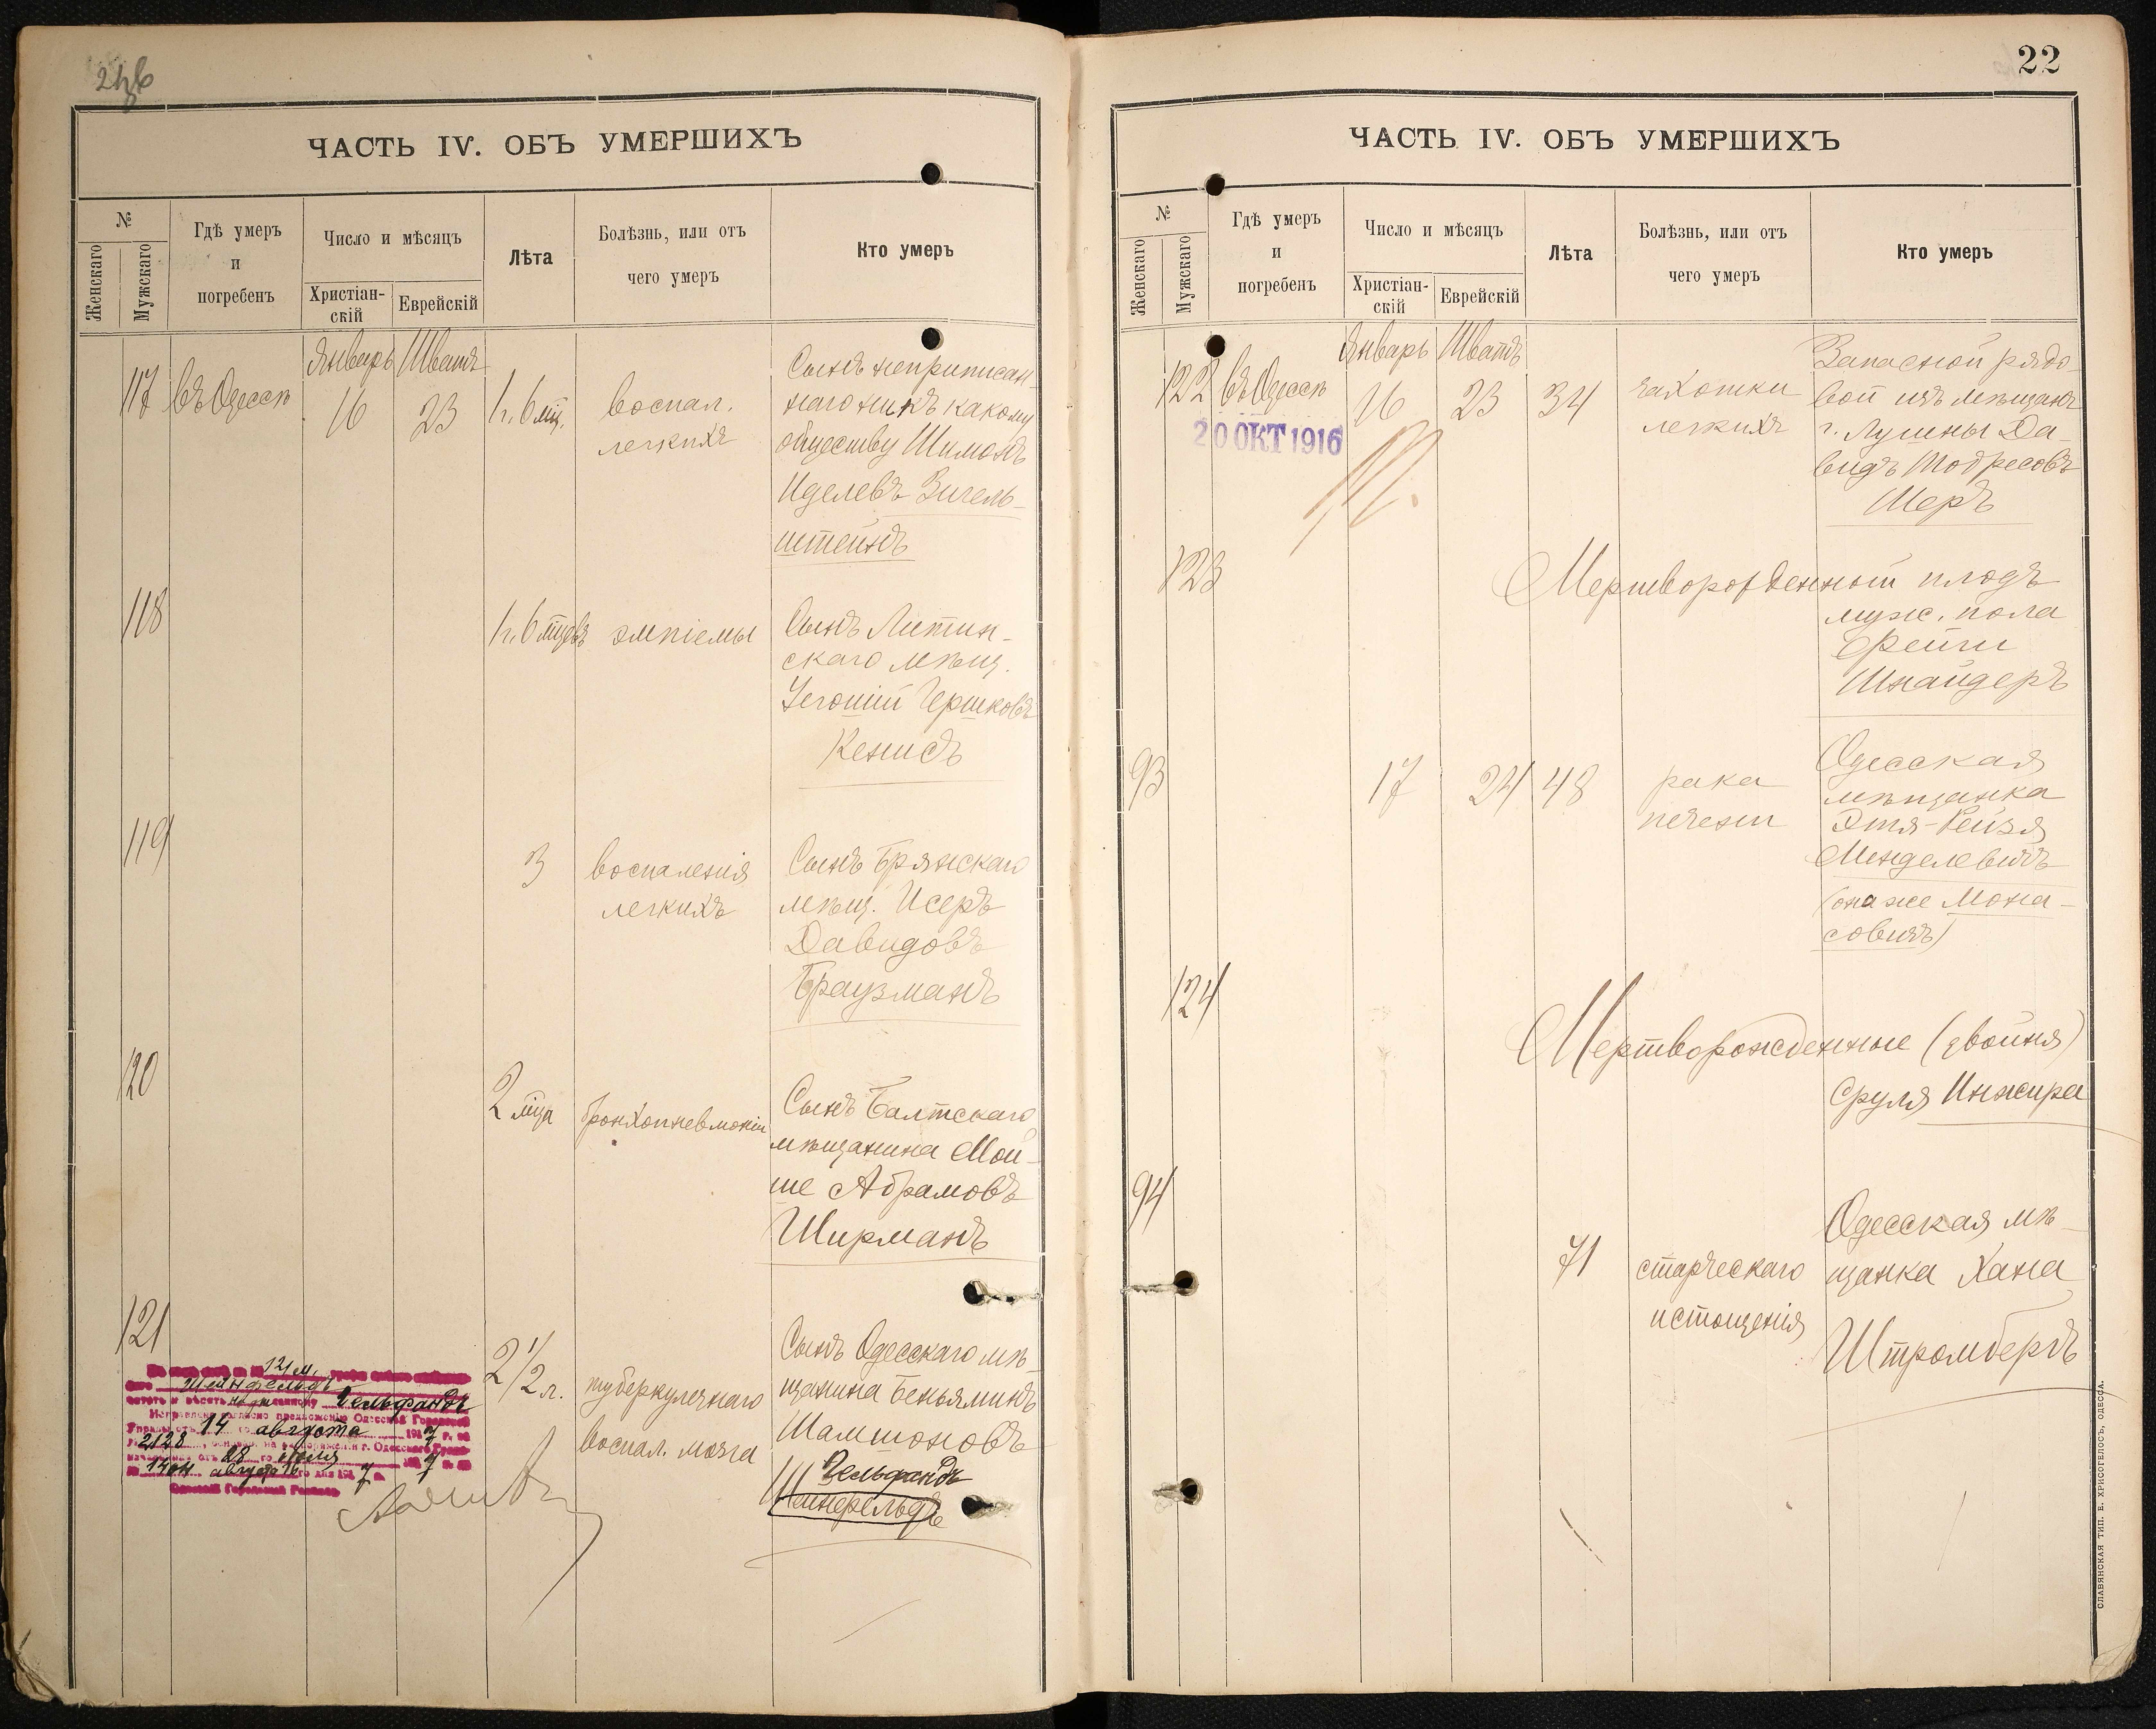 ЧАСТЬ IV. ОБЪ УМЕРШИХЪ
№
Женскаго
Мужскаго
Гдѣ умеръ
и
погребенъ
Число и мѣсяцъ
Христіан-
скій
Еврейскій
Лѣта
Болѣзнь, или отъ
чего умеръ
Кто умеръ
Январь Шватъ
117 въ Одессѣ 16 23 1 г. 6 мц.
воспал.
легкихъ
Сынъ неприписан-
наго ни къ какому
обществу Шимонъ
Иделевъ Зигель-
штейнъ
118
1 г. 6 мцевъ эмпіемы
Сынъ Литин-
скаго мѣщ.
Гершковъ
119
3 воспаленія
легкихъ
Сынъ Бряжскаго
мѣщ. Исеръ
Давидовъ
Браузманъ
120
2 мца бронхопневмоніи
Сынъ Балтскаго
мѣщанина Мой-
ше Абрамовъ
Ширманъ
121
2 1/2 л. туберкулезнаго
воспал. мозга
Сынъ Одесскаго мѣ-
щанина Беньяминъ
Шамшоновъ
Гельфандъ
Шейнфельдъ
121 м.
Шейнфельдъ
Гельфандъ
14 августа 1917 г.
2128
28 іюля
1404 августа 16 7
22
ЧАСТЬ IV. ОБЪ УМЕРШИХЪ
№
Женскаго
Мужскаго
Гдѣ умеръ
и
погребенъ
Число и мѣсяцъ
Христіан-
скій
Еврейскій
Лѣта
Болѣзнь, или отъ
чего умеръ
Кто умеръ
Январь Шватъ
122 въ Одессѣ 16 23 34
чахотки
легкихъ
20 ОКТ 1916
Запасной рядо-
вой изъ мѣщанъ
г. Лучины Да-
видъ Тодресовъ
Шеръ
123
Мертворожденный плодъ
муж. пола
Фейги
Шнайдеръ
93
17 24 48
рака
печени
Одесская
мѣщанка
Этя-Рейзя
Менделевичъ
(она же Мона-
совичъ)
124
Мертворожденные (двойня)
Сруля Инжира
94
71 старческаго
истощенія
Одесская мѣ-
щанка Хана
Штромбергъ
СЛАВЯНСКАЯ ТИП. Е. ХРИСОГЕЛОСЪ, ОДЕССА.